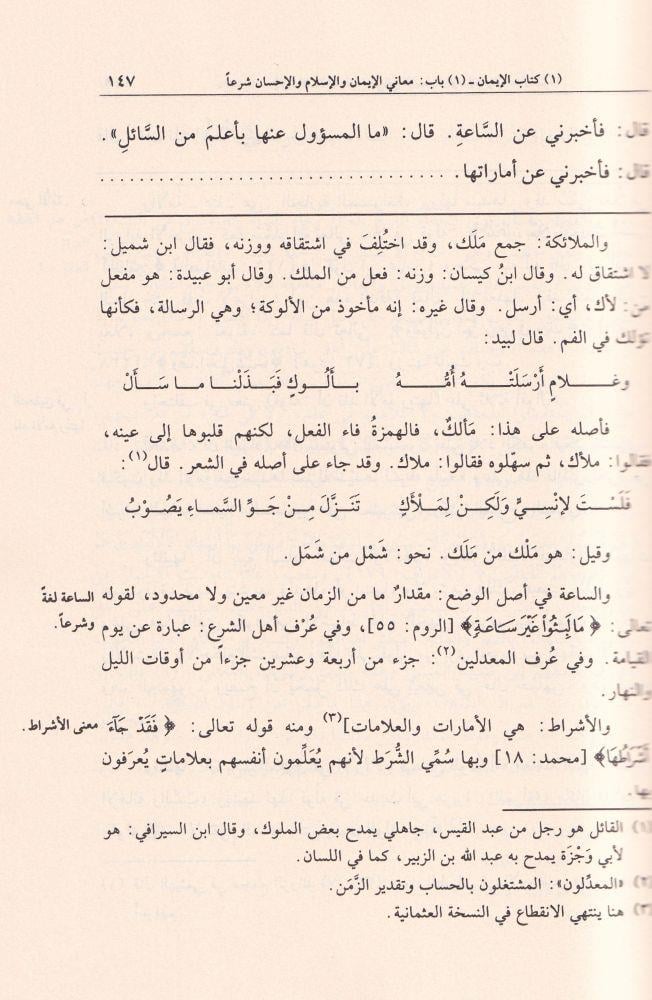 (١) كتاب الإيمان - (١) باب: معاني الإيمان والإسلام والإحسان شرعاً ١٤٧
قال: فأخبرني عن السَّاعةِ. قال: «ما المسؤول عنها بأعلمَ من السَّائلِ».
قال: فأخبرني عن أماراتها. ..................................
والملائكة: جمع مَلَك، وقد اختُلِفَ في اشتقاقه ووزنه، فقال ابن شميل:
لا اشتقاق له. وقال ابنُ كيسان: وزنه: فعل من الملك. وقال أبو عبيدة: هو مفعل
من: لأك، أي: أرسل. وقال غيره: إنه مأخوذ من الألوكة؛ وهي الرسالة، فكأنها
تؤلك في الفم. قال لبيد:
وغـلامٍ أَرْسَلَتْـهُ أُمُّـهُ بـأَلُوكٍ فَبَذَلْنـا مـا سَـأَلْ
فأصله على هذا: مَألكٌ، فالهمزةُ فاء الفعل، لكنهم قلبوها إلى عينه،
فقالوا: ملأك، ثم سهّلوه فقالوا: ملاك. وقد جاء على أصله في الشعر. قال(١):
فَلَسْتَ لإنْسِيٍّ وَلَكِنْ لِمَلْأَكٍ تَنَزَّلَ مِنْ جَوِّ السَّماءِ يَصُوْبُ
وقيل: هو مَلْك من مَلَك. نحو: شَمْل من شَمَل.
والساعة في أصل الوضع: مقدارٌ ما من الزمان غير معين ولا محدود، لقوله الساعة لغةً
تعالى: ﴿مَا لَبِثُوا غَيْرَ سَاعَةٍ﴾ [الروم: ٥٥]، وفي عُرْف أهل الشرع: عبارة عن يوم وشرعاً.
القيامة. وفي عُرف المعدلين(٢): جزء من أربعة وعشرين جزءاً من أوقات الليل
والنهار.
والأشراط: هي الأمارات والعلامات](٣) ومنه قوله تعالى: ﴿فَقَدْ جَآءَ معنى الأشراط.
أَشْرَاطُهَا﴾ [محمد: ١٨] وبها سُمِّي الشُّرَط لأنهم يُعَلِّمون أنفسهم بعلاماتٍ يُعرَفون
بها.
(١) القائل هو رجل من عبد القيس، جاهلي يمدح بعض الملوك، وقال ابن السيرافي: هو
لأبي وَجْزَة يمدح به عبد الله بن الزبير، كما في اللسان.
(٢) «المعدِّلون»: المشتغلون بالحساب وتقدير الزَّمَن.
(٣) هنا ينتهي الانقطاع في النسخة العثمانية.